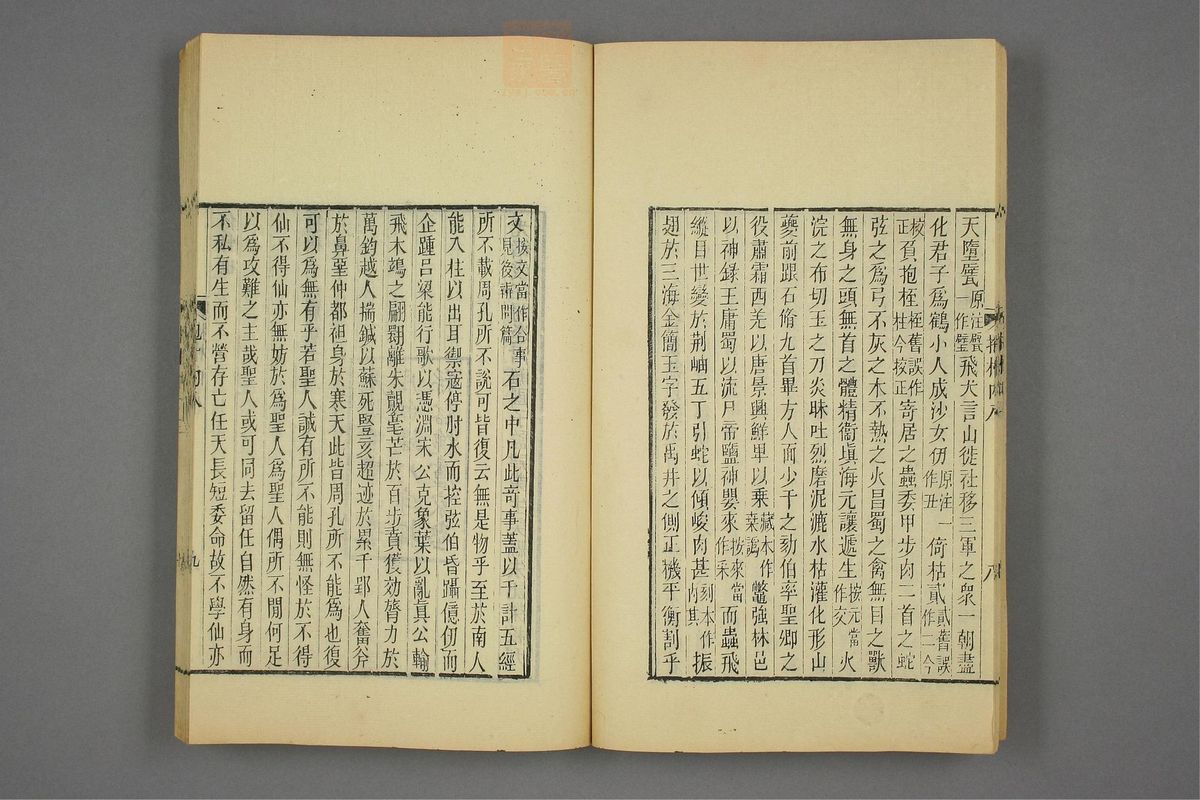 天墮甓原注甓一作璧飛犬言山徙社移三軍之衆一朝盡
化君子爲鶴小人成沙女仞原注一作丑倚枯貳貳舊誤作二今
校正負抱桎桎舊誤作桂今按正寄居之蟲委甲步肉二首之蛇
弦之爲弓不灰之木不熱之火昌蜀之禽無目之獸
無身之頭無首之體精衞塡海元讓遞生按元當作交火
浣之布切玉之刀炎昧吐烈磨泥漉水枯灌化形山
夔前跟石脩九首畢方人面少千之劾伯率聖卿之
役肅霜西羌以唐景興鮮卑以乗藏本作桀譌鼈強林邑
以神錄王庸蜀以流尸帝鹽神嬰來按來當作釆而蟲飛
縱目世變於荆岫五丁引蛇以傾峻肉甚刻本作肉其振
翅於三海金簡玉字發於禹井之側正機平衡割乎
文按文當作合事見後辨問篇石之中凡此竒事蓋以千計五經
所不載周孔所不説可皆復云無是物乎至於南人
能入柱以出耳禦寇停肘水而控弦伯昏躡億仞而
企踵呂梁能行歌以憑淵宋公克象葉以亂眞公輸
飛木鵄之翩翾離朱覿毫芒於百步賁獲効膂力於
萬鈞越人揣鍼以蘇死豎亥超迹於累千郢人奮斧
於鼻堊仲都袒身於寒天此皆周孔所不能爲也復
可以爲無有乎若聖人誠有所不能則無怪於不得
仙不得仙亦無妨於爲聖人爲聖人偶所不閒何足
以爲攻難之主哉聖人或可同去留任自然有身而
不私有生而不營存亡任天長短委命故不學仙亦